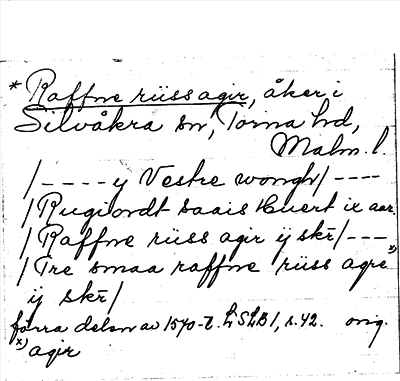 * Raffne riiss agir, åker i
Silvåkra sn, Torna hd,
Malm. l.
/---- y Vestre wongh/ ----
/Rugiordt saais Huert ix aar.
/Raffne riiss agir ij skr̄/---
/Tre smaa raffne riiss agre x)
ij skr̄/
förra delen av 1570-t. LSLB 1, s. 42. orig.
x) agir